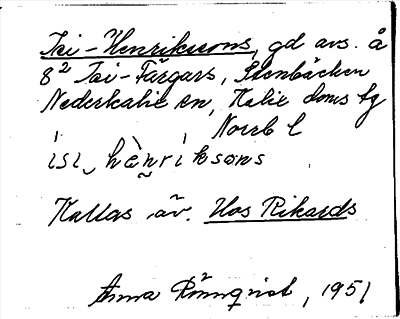 Isi-Henrikssons, gd avs. å
8² Isi-Färgars, Stenbäcken
Nederkalix sn, Kalix doms tg
Norrb l
 isi hènriksons
Kallas äv. Hos Rikards
Anna Rönnqvist, 1951